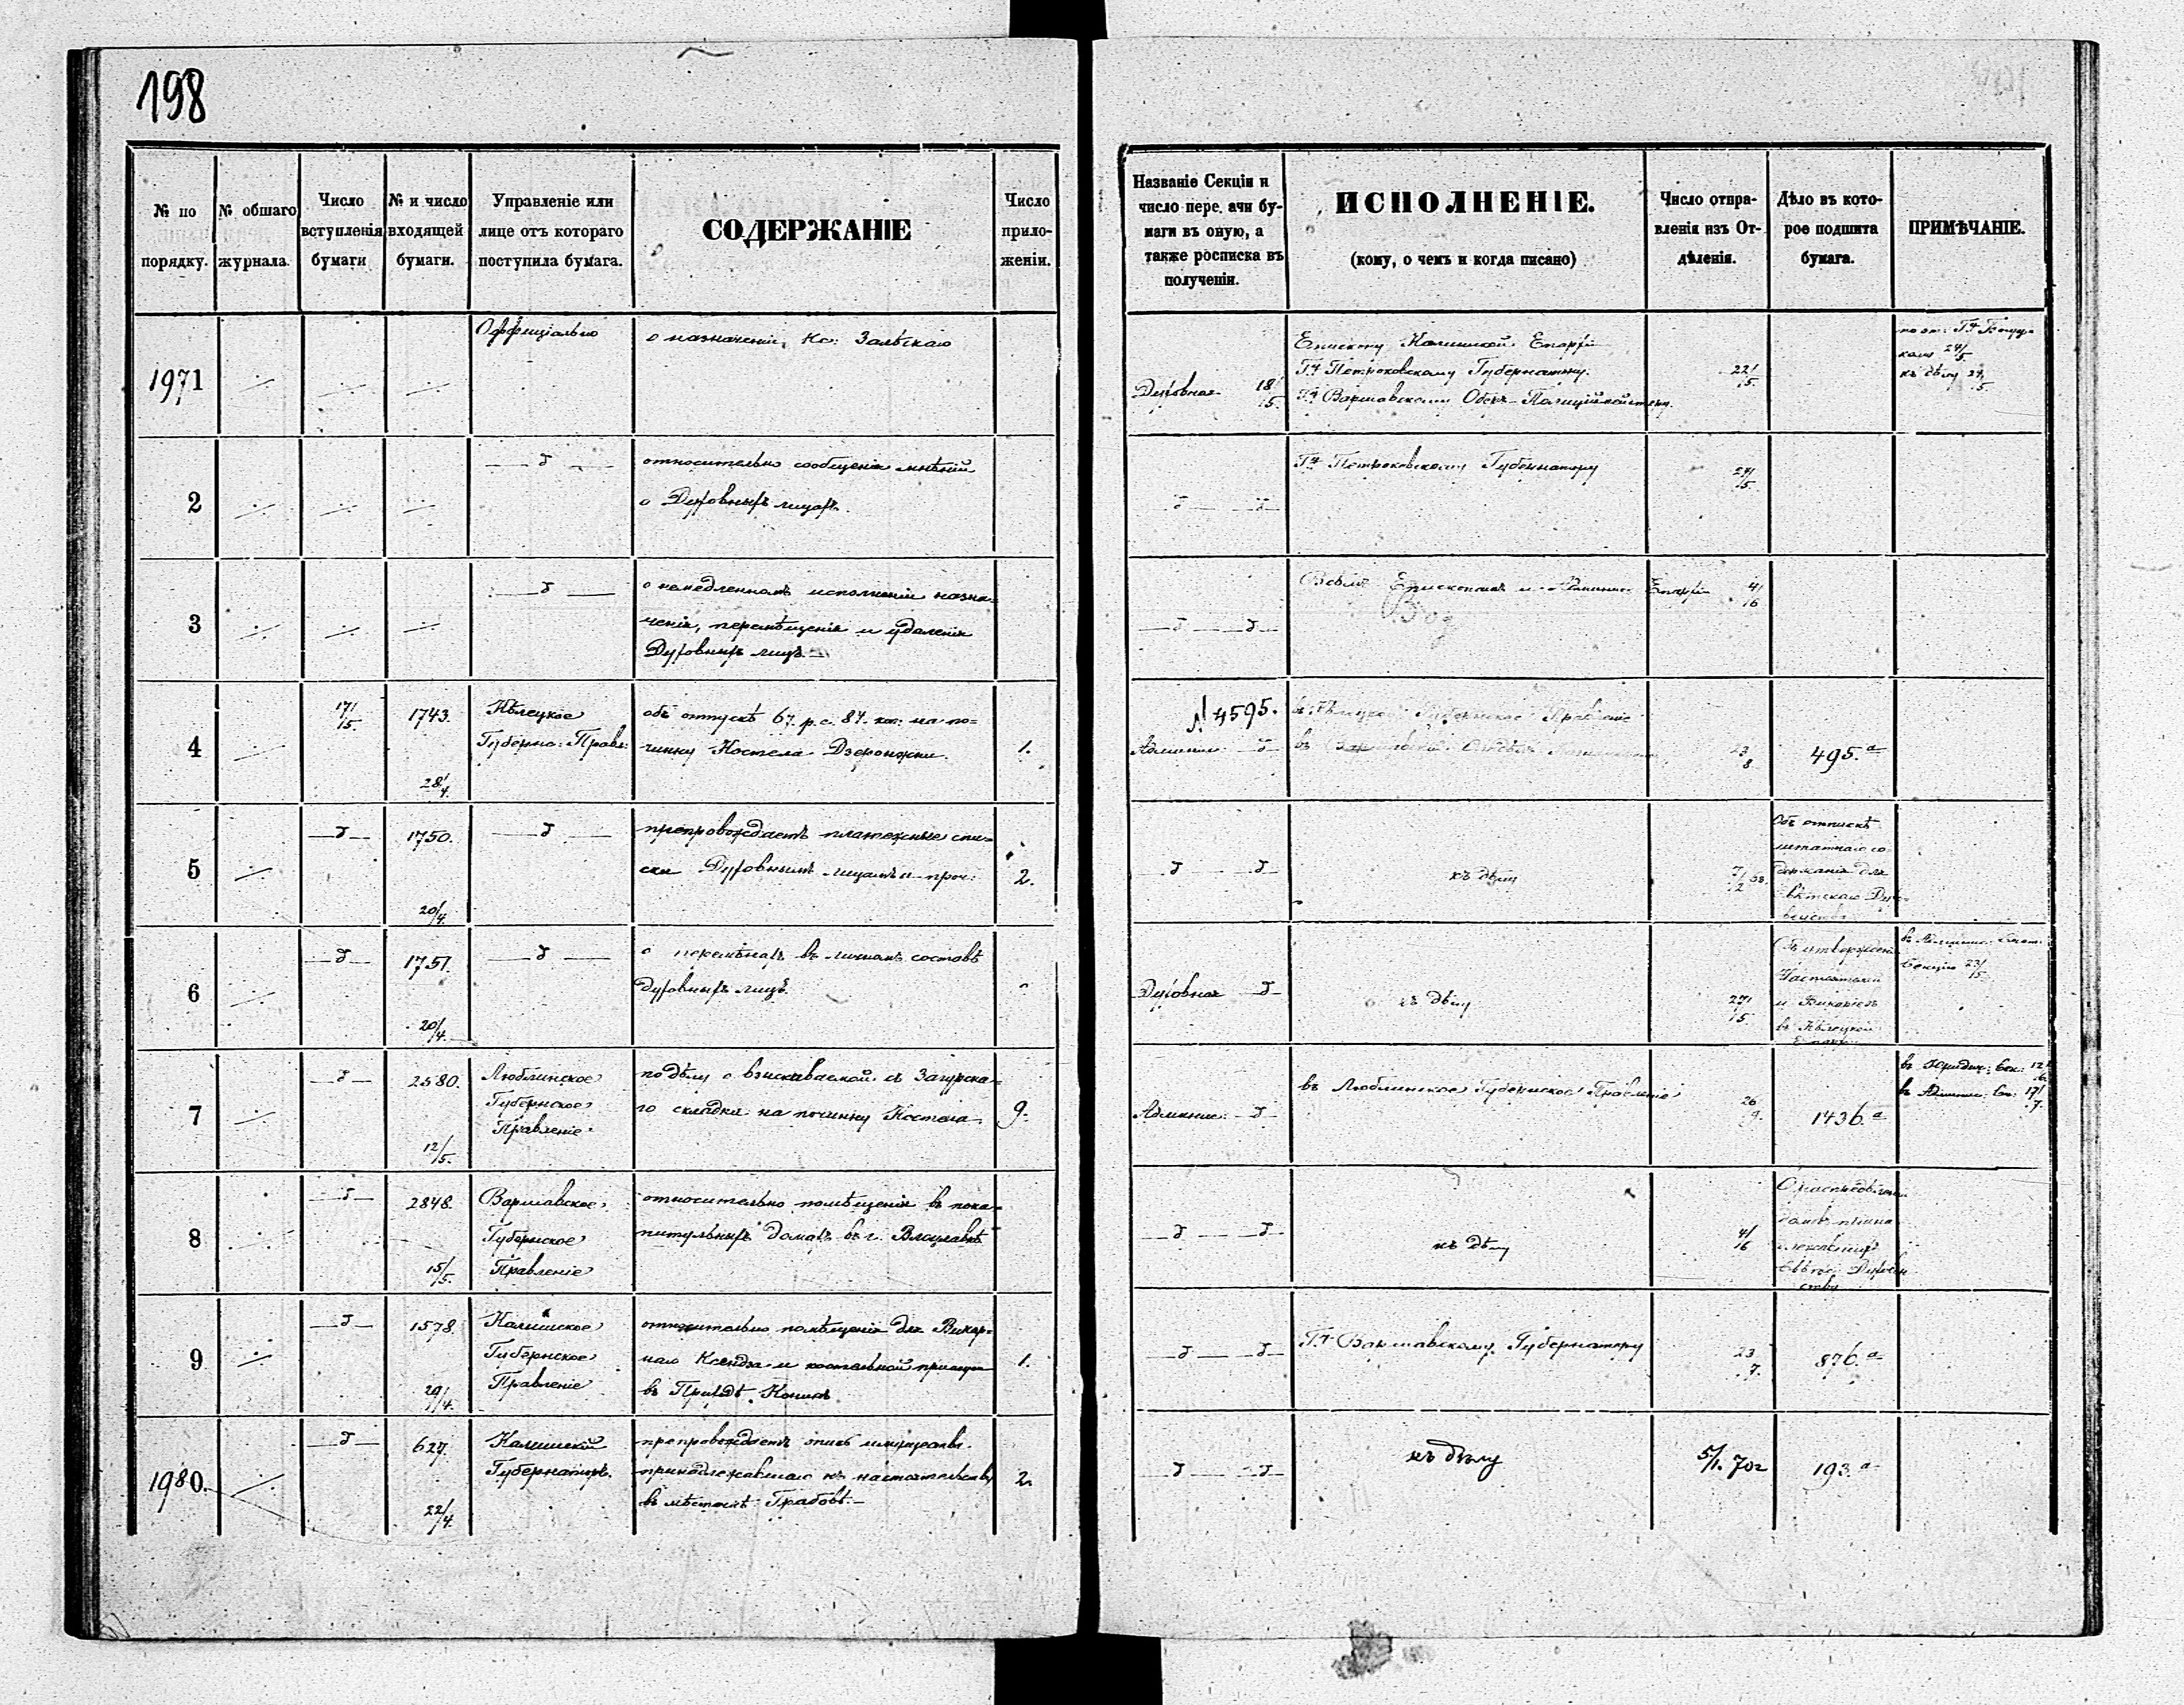 198
№ по порядку.
№ обшаго журнала.
Число вступленія бумаги
№ и число входящей бумаги.
Управленіе или лице отъ котораго поступила бумага.
СОДЕРЖАНІЕ
Число прило-женіи.
Названіе Секціи и число пере. ачи бу-маги въ оную, а также росписка въ полученіи.
ИСПОЛНЕНІЕ.
(кому, о чемъ и когда писано)
Число отпра-вленія изъ От-дѣленія.
Дѣло въ кото-рое подшита бумага.
ПРИМѢЧАНІЕ.
1971
Оффиціально
о назначеніи Кс: Залѣскаго
Духовная 18/5.
Епископу Калишской Епархіи
Гну Петроковскому Губернатору.
Гну Варшавскому Оберъ-Полиціймейстеру.
22/5.
24/5.
къ дѣлу 24/5.
2
относительно сообщенія мнѣній
о Духовныхъ лицахъ.
Гну Петроковскому Губернатору
24/5.
3
о немедленномъ исполненіи назна-
ченія, перемѣщенія и удаленія
Духовныхъ лицъ.
Всѣмъ Епископамъ и Админи: Епархій
4/16
4
17/5.
1743.
28/4.
Кѣлецкое
Губернс: Правл:
объ отпускѣ 67. р. с. 84. коп: на по-
чинку Костела Дзеронжни.
1.
№ 4595.
Админис:
въ Кѣлецкое Губернское Правленіе
23/8
495.а
5
1750.
20/4.
препровождаетъ платежные спи-
ски Духовнымъ лицамъ и проч:
2.
къ дѣлу
Объ отпускѣ
штатнаго со
держанія для
6
1751.
20/4.
о перемѣнахъ въ личномъ составѣ
Духовныхъ лицъ.
Духовная
къ дѣлу
27/5
Объ утвержденіи
Настоятелей
и Викаріевъ
въ Кѣлецкой
Епархіи
въ Админис:
Секцію 23/5
7
2580.
12/5.
Люблинское
Губернское
Правленіе
по дѣлу о взыскиваемой съ Загурска-
го складки на починку Костела
9.
Админис:
въ Люблинское Губернское Правленіе
26/9.
1436.а
въ Юридич: Сек: 12/6
въ Админис: Сек: 17/7.
8
2848.
15/5.
Варшавское
Губернское
Правленіе
относительно помѣщенія въ пока-
питульныхъ домахъ въ г. Влоцлавкѣ
къ дѣлу
4/16
9
1578.
29/4.
Калишское
Губернское
Правленіе
относительно помѣщенія для Викар-
наго Ксендза и костельной прислуги
въ Приходѣ Конинъ
1.
Гну Варшавскому Губернатору
23/7.
876.а
1980.
627.
22/4.
Калишскій
Губернаторъ.
препровождаетъ опись имущества
принадлежавшаго къ настоятельству
въ мѣстечкѣ Грабовѣ.
2.
къ дѣлу
5/1. 70г
193.а